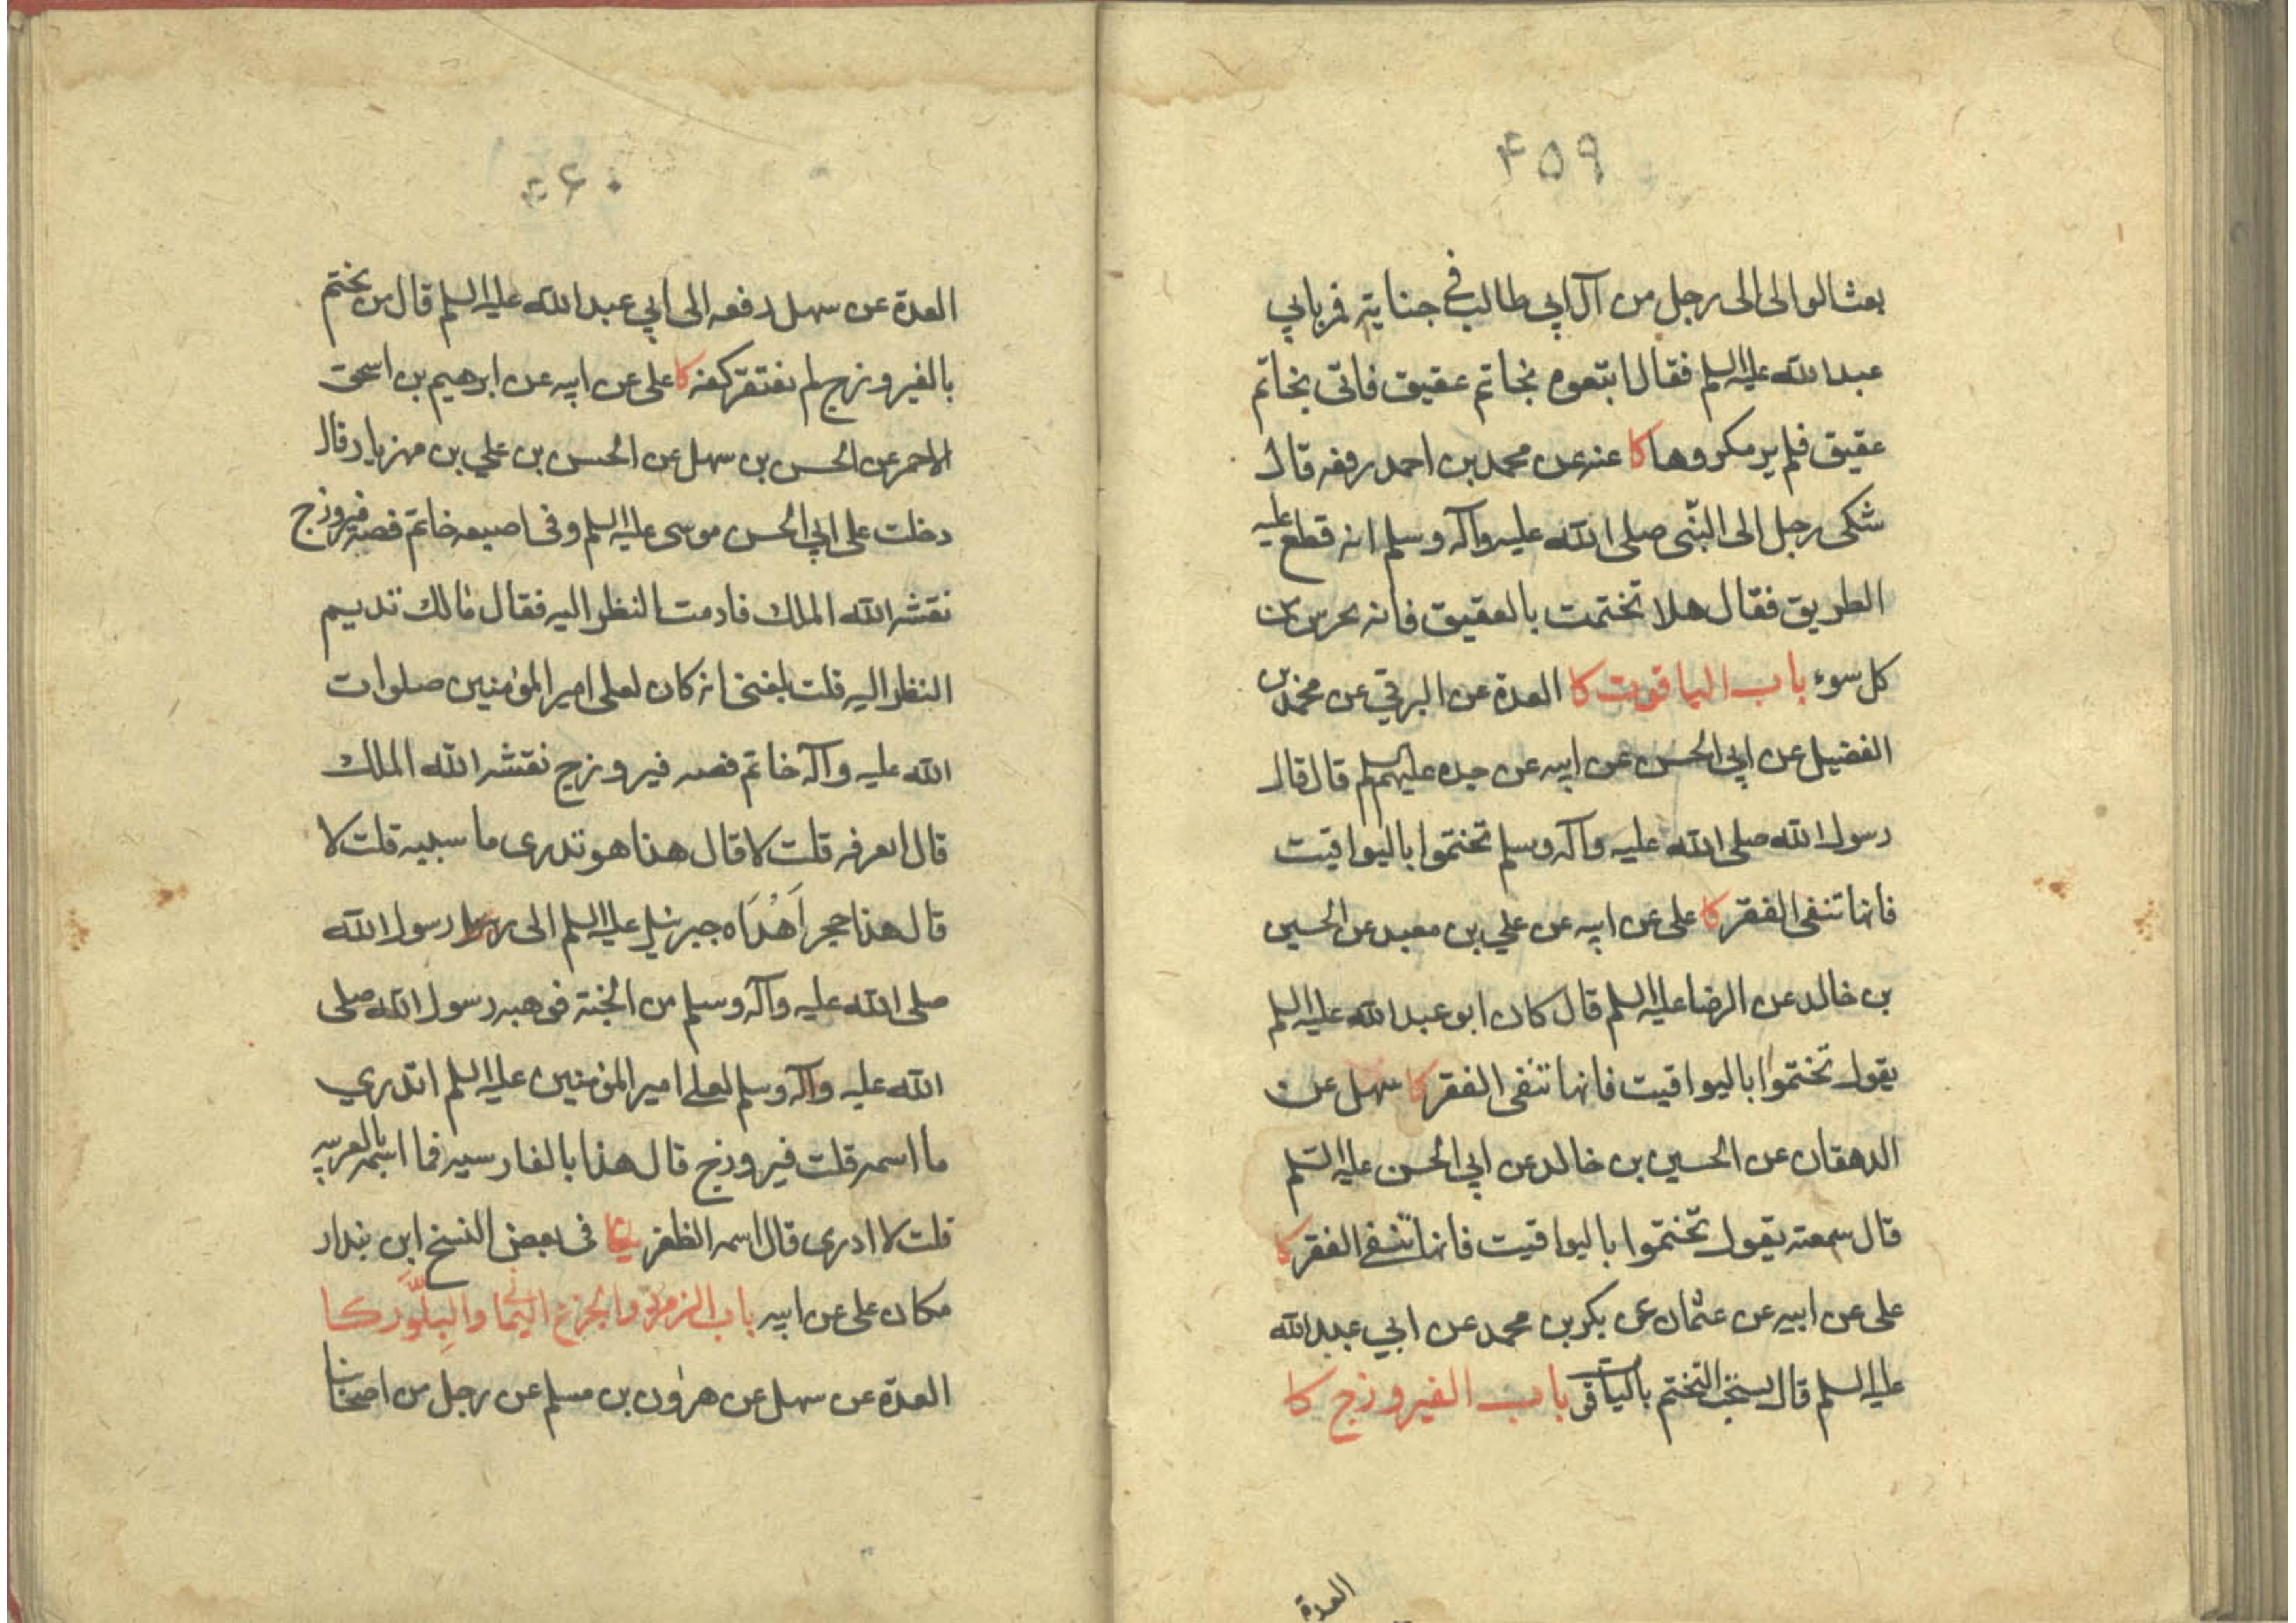 ۴۵۹
بعث الوالی الی رجل من آل ابی طالب فی جنایة فمر بابی
عبد الله علیه السلم فقال اتبعوه بخاتم عقیق فاتی بخاتم
عقیق فلم یر مکروها کا عنه عن محمد بن احمد رفعه قال
شکی رجل الی النبّی صلی الله علیه وآله وسلم انه قطع علیه
الطریق فقال هلا تختمت بالعقیق فانه یحرس من
کل سوء باب الیاقوت کا العدة عن البرقی عن محمد بن
الفضیل عن ابی الحسن عن ابیه عن جده علیهم السلم قال قال
رسول الله صلی الله علیه وآله وسلم تختموا بالیواقیت
فانها تنفی الفقر کا علی عن ابیه عن علي بن معبد عن الحسین
بن خالد عن الرضا علیه السلم قال کان ابو عبد الله علیه السلم
یقول تختموا بالیواقیت فانها تنفی الفقر کا سهل عن
الدهقان عن الحسین بن خالد عن ابی الحسن علیه السّلم
قال سمعته یقول تختموا بالیواقیت فانها تنفی الفقر کا
علی عن ابیه عن عثمان عن بکر بن محمد عن ابی عبد الله
علیه السلم قال یستحب التختم بالیاقوت باب الفیروزج کا
العدة
۴۶۰
العدة عن سهل رفعه الی ابی عبد الله علیه السلم قال من تختم
بالفیروزج لم یفتقر کفه کا علی عن ابیه عن ابرهیم بن اسحق
الاحمر عن الحسن بن سهل عن الحسن بن علي بن مهزیار قال
دخلت علی ابی الحسن موسی علیه السلم وفی اصبعه خاتم فصه فیروزج
نقشه الله الملك فادمت النظر الیه فقال مالك تدیم
النظر الیه قلت بلغنی انه کان لعلی امیر المؤمنین صلوات
الله علیه وآله خاتم فصه فیروزج نقشه الله الملك
قال اتعرفه قلت لا قال هذا هو تدری ما سببه قلت لا
قال هذا حجر اَهْدَاه جبرئیل علیه السلم الی رسول الله
صلی الله علیه وآله وسلم من الجنة فوهبه رسول الله صلی
الله علیه وآله وسلم لعلي امیر المؤمنین علیه السلم اتدري
ما اسمه قلت فیروزج قال هذا بالفارسیه فما اسمه بالعربیه
قلت لا ادری قال اسمه الظفر فی بعض النسخ ابن بندار
مکان علی عن ابیه باب الزمرد والجزع الیمانی والبِلَّور کا
العدة عن سهل عن هرون بن مسلم عن رجل من اصحابنا